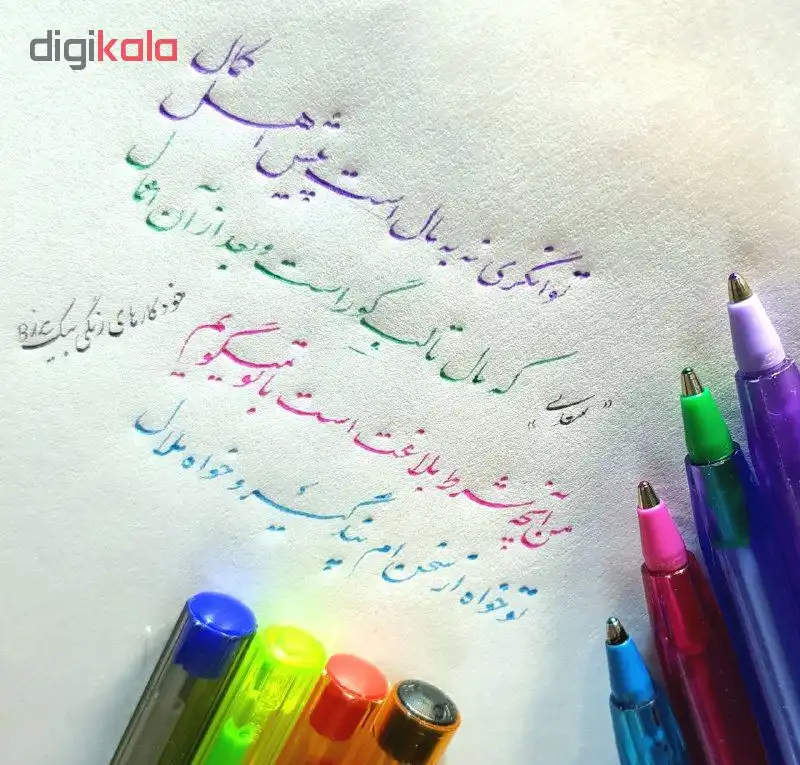 digikala
توانگری نه به مال است پیش اهل کمال
که مال تا لب گور است و بعد از آن اعمال
« سعدی »
من آنچه شرط بلاغت است با تو میگویم
تو خواه از سخن ام پند گیر و خواه ملال
خودکارهای رنگی بیک